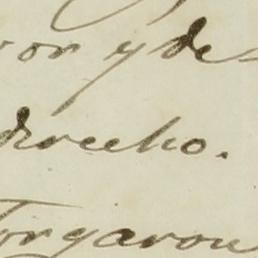 or y de
derecho.
orgaron